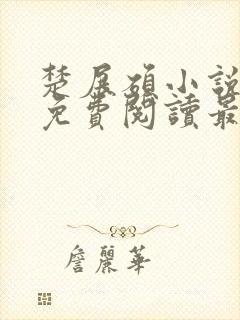 楚展碩小說
免費閱讀最
詹麗華